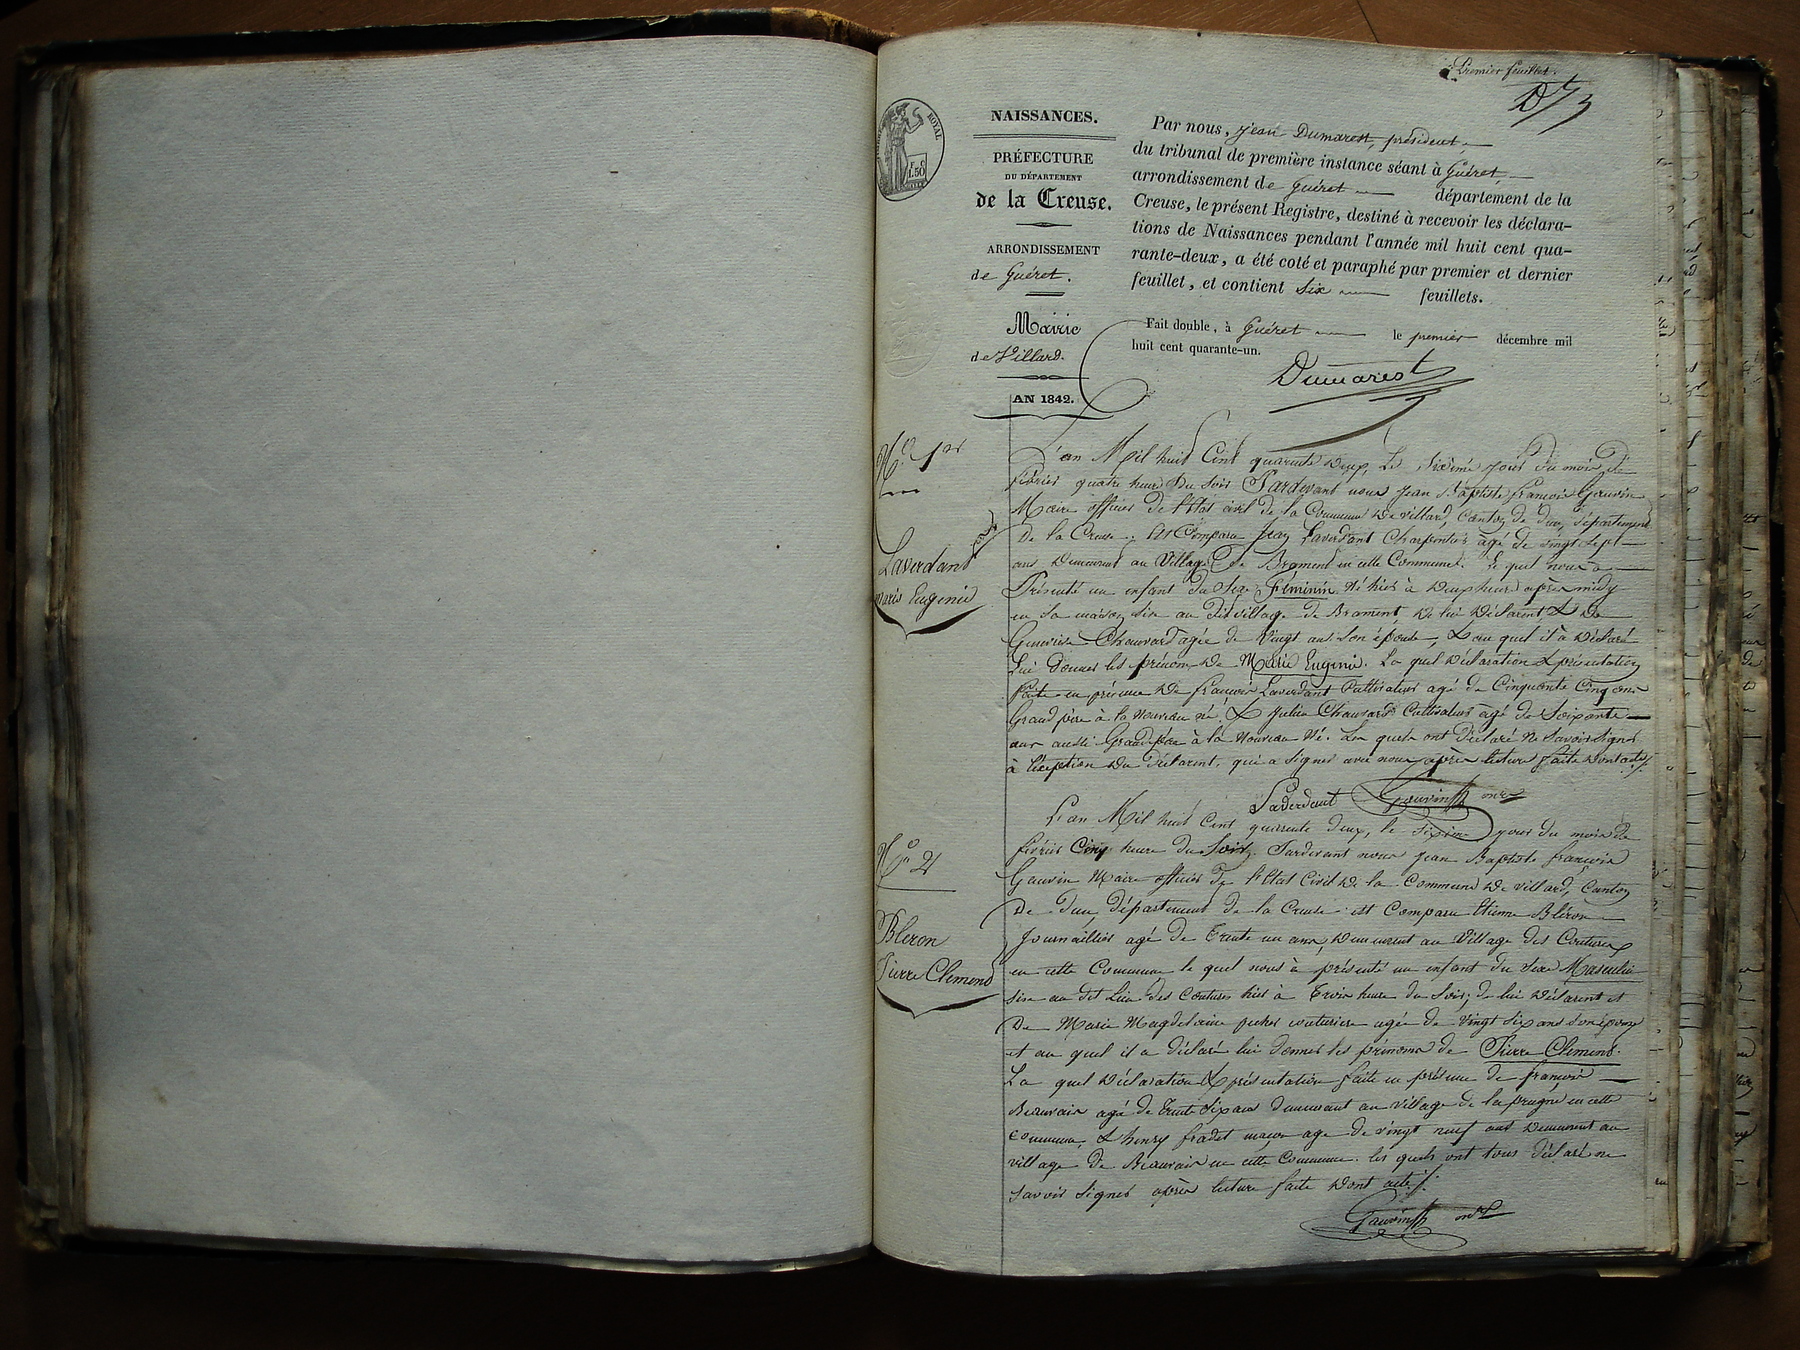 Premier feuillet.
NAISSANCES.
PRÉFECTURE
DU DÉPARTEMENT
de la Creuse.
ARRONDISSEMENT
de Guéret.
Mairie
de Villard.
AN 1842.
ROYAL
F C
1.50
Par nous, Jean Dumarest, président
du tribunal de première instance séant à Guéret,
arrondissement de Guéret département de la
Creuse, le présent Registre, destiné à recevoir les déclara-
tions de Naissances pendant l'année mil huit cent qua-
rante-deux, a été coté et paraphé par premier et dernier
feuillet, et contient six feuillets.
Fait double, à Guéret le premier décembre mil
huit cent quarante-un.
Dumarest
N.o 1er
Laverdant
Marie Eugenie
L'an Mil huit Cent quarante deux, Le Sixième jour du mois de
février quatre heure du Soir Pardevant nous Jean Baptiste françois Gauvin
Maire officier de l'état civil de la Commune de villard, Canton de dun, département
De la Creuse. Est Comparu Jean Laverdant Charpentier agé de vingt sept
ans Demeurant au Village de Brament en cette Commune. Le quel nous a
Présenté un enfant du Sexe Féminin né hier à Deux heure après midy
en sa maison, sise au dit village de Brament, de lui Déclarent, & De
Genevieve Chauvard agée de Vingt ans Son épouse, & au quel il à Déclaré
Lui donner les prénoms de Marie Eugenie. La quel Déclaration & présentation
faite en présence de françois Laverdant Cultivateur agé de Cinquante Cinq ans
Grand père à la nouveau né, & Julien Chauvard Cultivateur agé de Soixante
ans aussi Grand père à la nouveau né. Les quels ont déclaré ne Savoir Signer
à l'éxeption du Déclarent, qui a Signer avec nous après lecture faite Dont acte.
Laverdant Gauvin mre
N.o 2
Bleron
Pierre Clemend
L'an Mil huit Cent quarante deux, le Sixième jour du mois de
février Cinq heure du Soir, Pardevant nous Jean Baptiste françois
Gauvin Maire officier de l'état Civil de la Commune de villard, Canton
De dun, département de la Creuse est Comparu Etienne Bléron
Journaillier agé de Trente un ans, Demeurent au Village des Coutures
en cette Commune le quel nous à présenté un enfant du Sexe Masculin
sise au dit Lieu des Coutures hier à Trois heure du Soir, de lui Déclarent et
De Marie Magdelaine couturiere agée de Vingt Six ans Son épouse
et au quel il a déclaré lui donner les prénoms de Pierre Clemend.
La quel Déclaration & présentation faite en présence de françois
Beauvais agé de Trente Six ans demeurant au village de la prugne en cette
commune, & henry fradet maçon age de vingt neuf ans Demeurent au
village de Beauvais en cette Commune. les quels ont tous déclaré ne
Savoir Signer après lecture faite Dont acte.
Gauvin mre